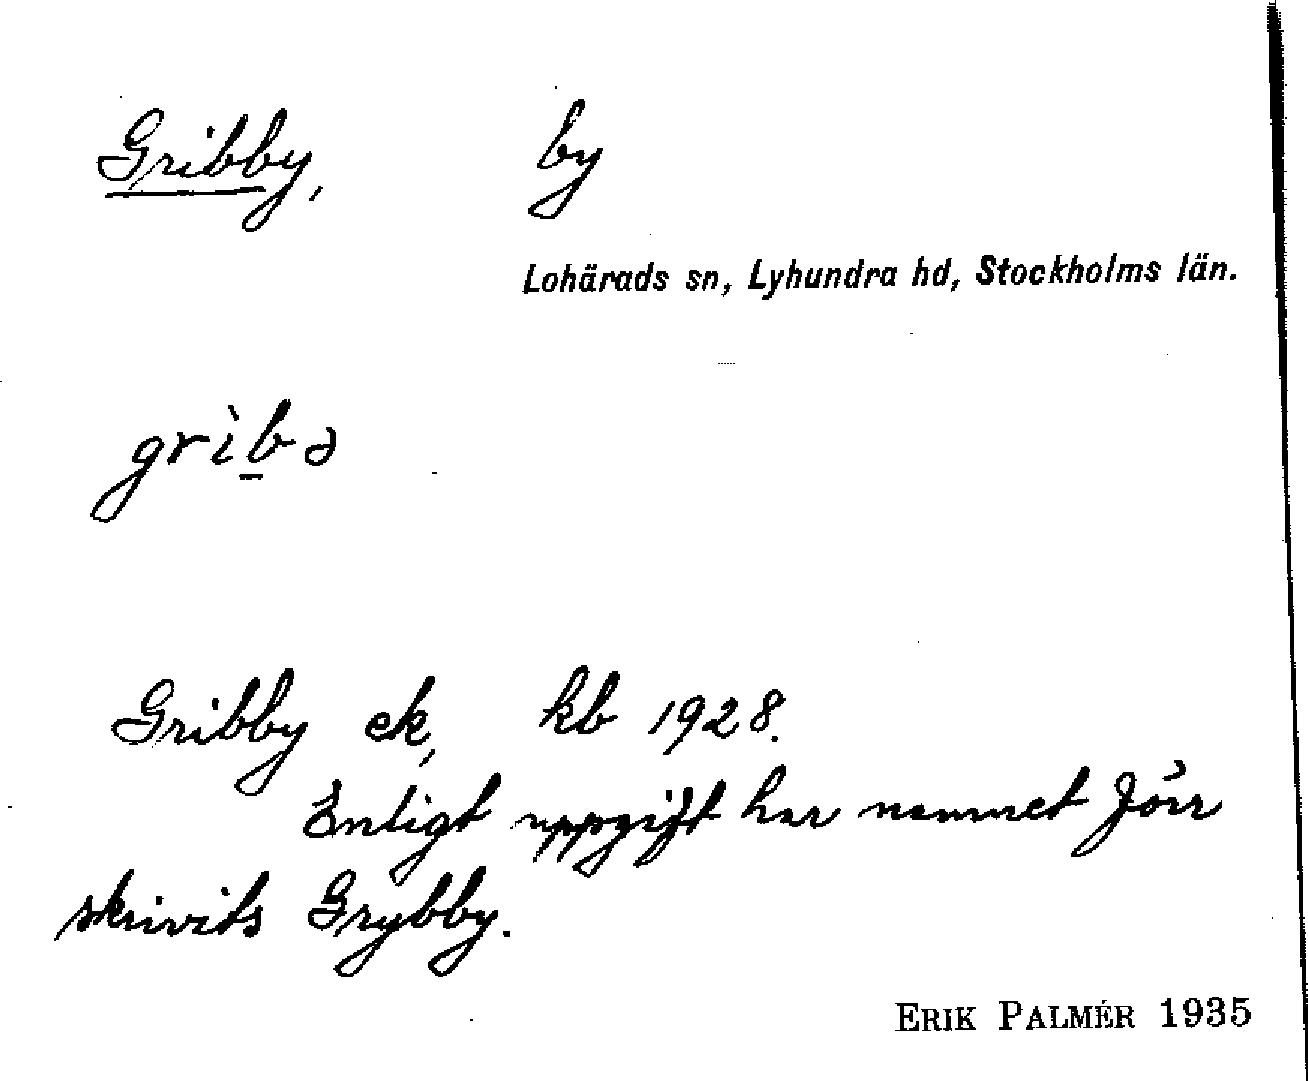 Gribby, by
Lohärads sn, Lyhundra hd, Stockholms län.
grìb̲ə
Gribby ek, kb 1928.
Enligt uppgift har namnet förr
skrivits Grybby.
ERIK PALMÉR 1935